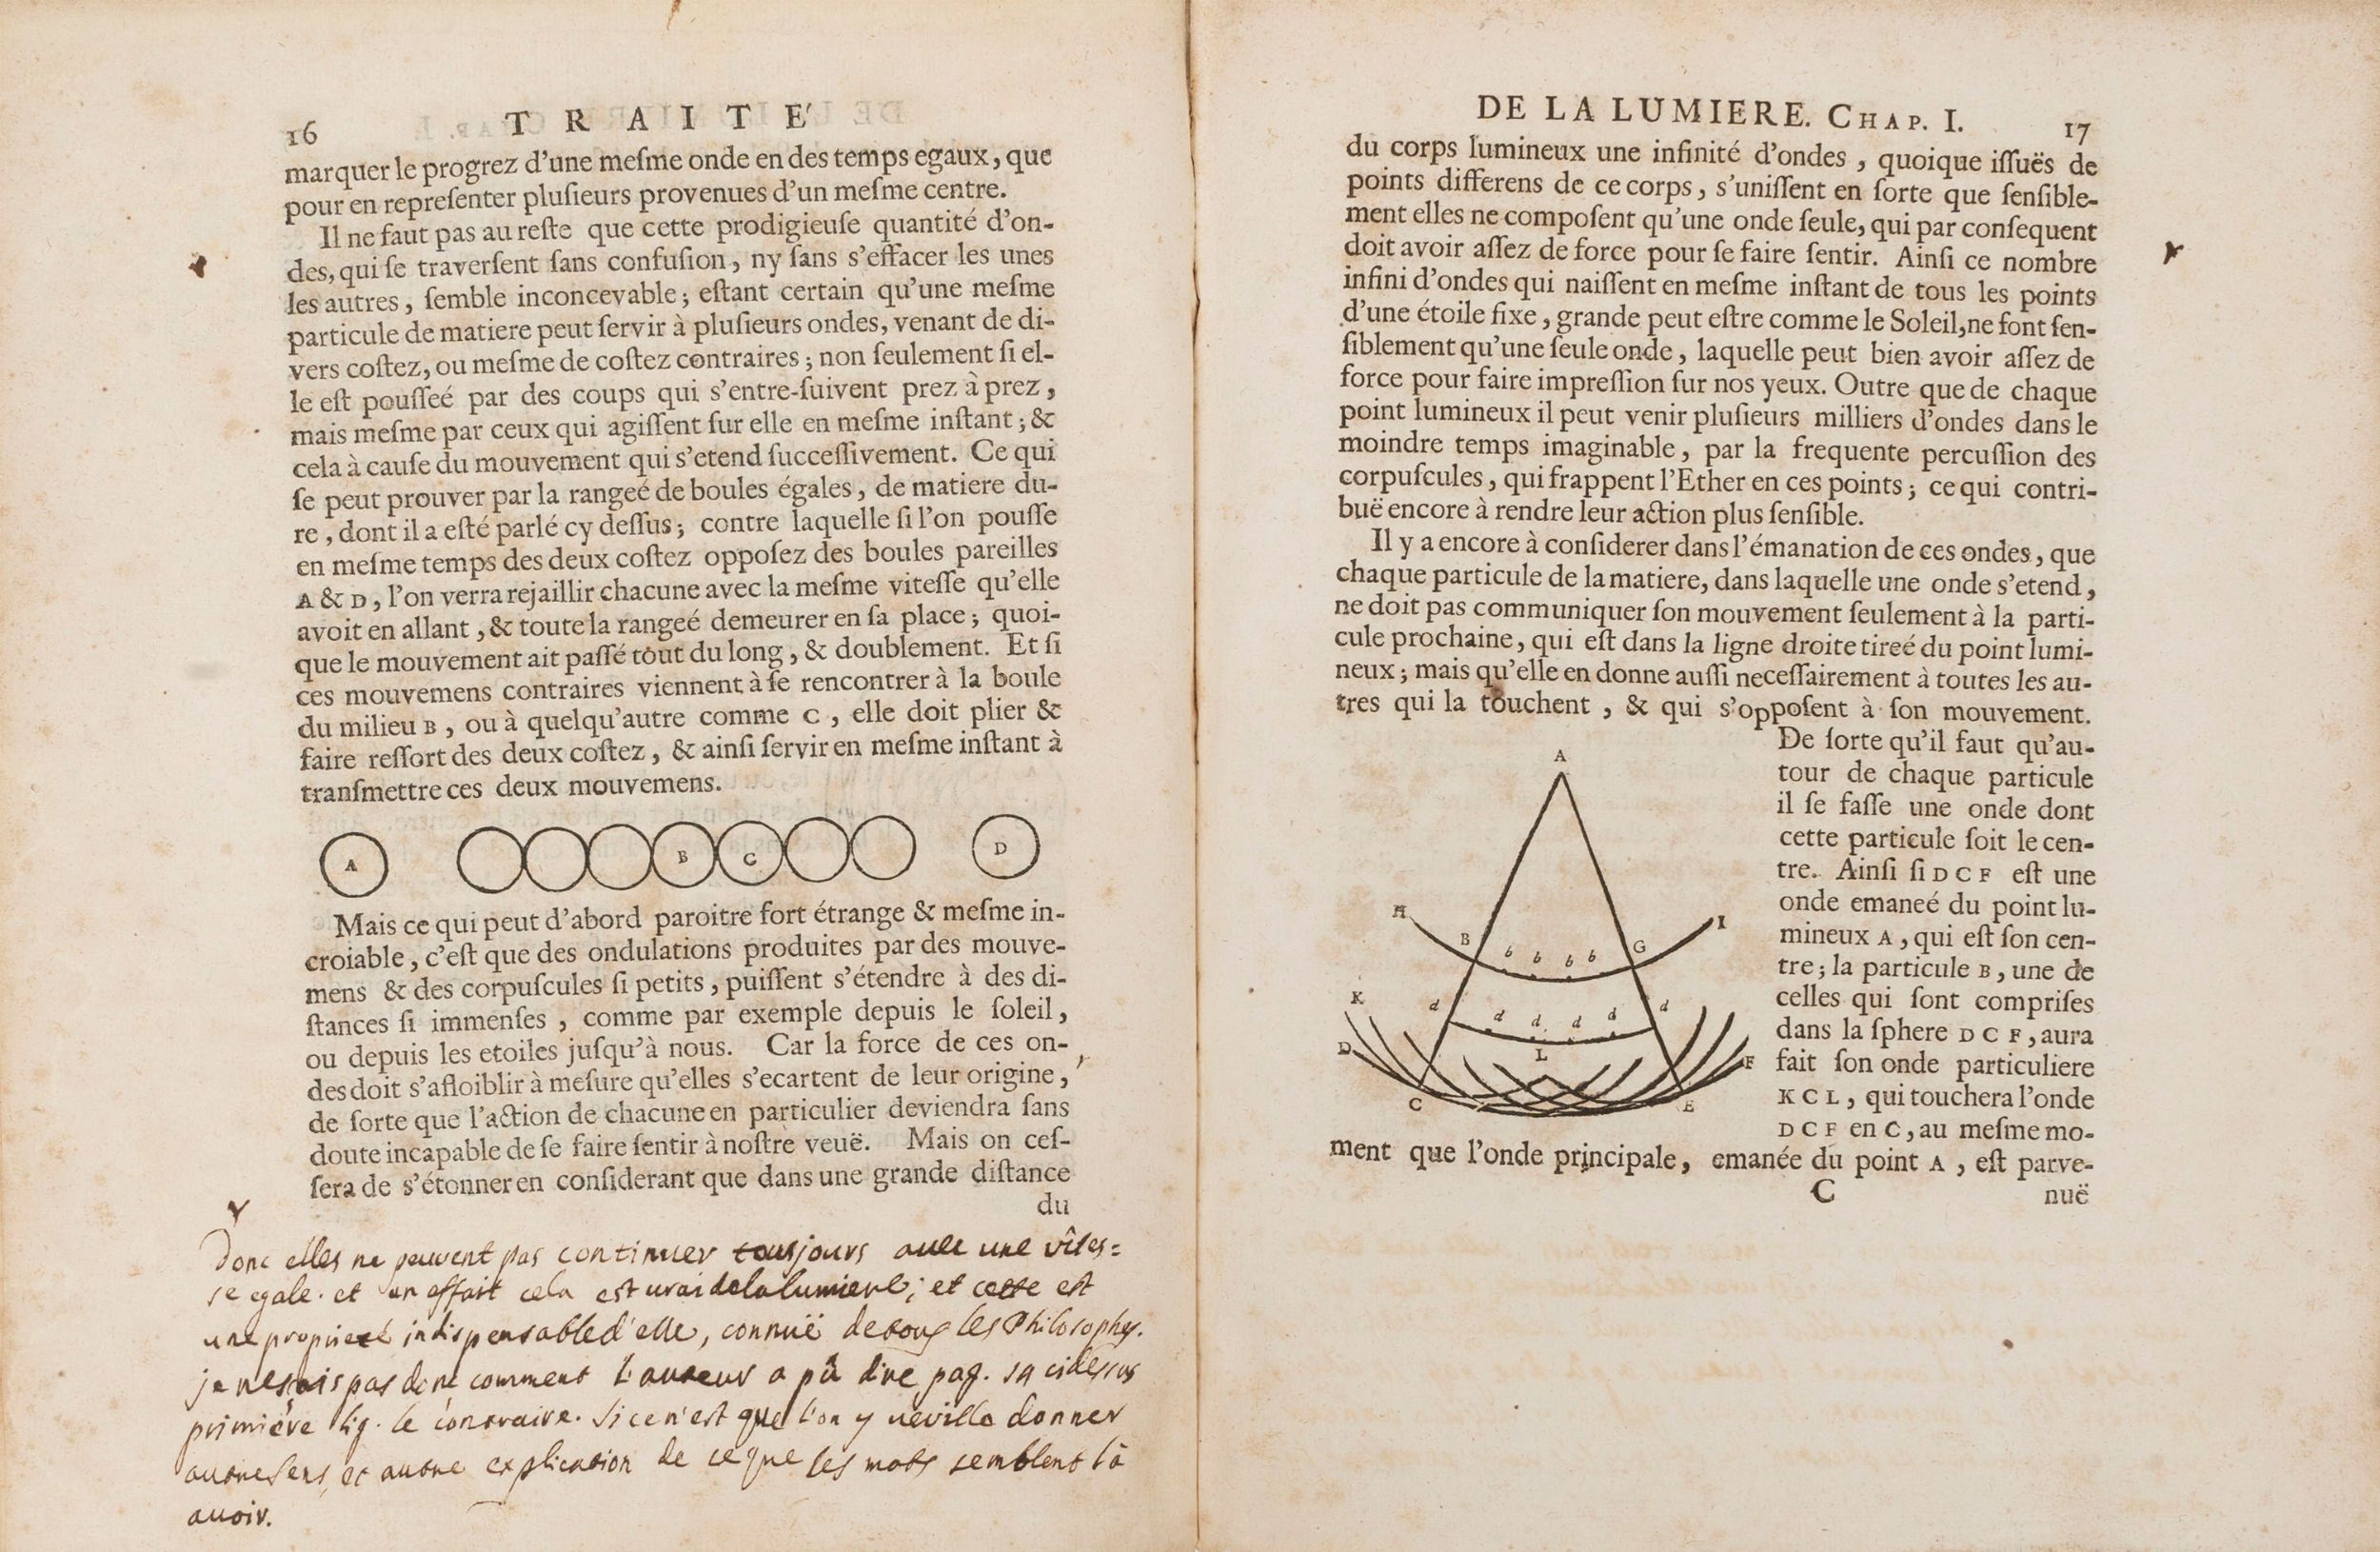 16 TRAITE'
marquer le progrez d'une meſme onde en des temps egaux, que
pour en repreſenter pluſieurs provenues d'un meſme centre.
Il ne faut pas au reſte que cette prodigieuſe quantité d'on-
des, qui ſe traverſent ſans confuſion, ny ſans s'effacer les unes
les autres, ſemble inconcevable; eſtant certain qu'une meſme
particule de matiere peut ſervir à pluſieurs ondes, venant de di-
vers coſtez, ou meſme de coſtez contraires; non ſeulement ſi el-
le eſt pouſſeé par des coups qui s'entre-ſuivent prez à prez,
mais meſme par ceux qui agiſſent ſur elle en meſme inſtant; &
cela à cauſe du mouvement qui s'etend ſucceſſivement. Ce qui
ſe peut prouver par la rangeé de boules égales, de matiere du-
re, dont il a eſté parlé cy deſſus; contre laquelle ſi l'on pouſſe
en meſme temps des deux coſtez oppoſez des boules pareilles
A & D, l'on verra rejaillir chacune avec la meſme viteſſe qu'elle
avoit en allant, & toute la rangeé demeurer en ſa place; quoi-
que le mouvement ait paſſé tout du long, & doublement. Et ſi
ces mouvemens contraires viennent à ſe rencontrer à la boule
du milieu B, ou à quelqu'autre comme C, elle doit plier &
faire reſſort des deux coſtez, & ainſi ſervir en meſme inſtant à
tranſmettre ces deux mouvemens.
A B C D
Mais ce qui peut d'abord paroitre fort étrange & meſme in-
croiable, c'eſt que des ondulations produites par des mouve-
mens & des corpuſcules ſi petits, puiſſent s'étendre à des di-
ſtances ſi immenſes, comme par exemple depuis le ſoleil,
ou depuis les etoiles juſqu'à nous. Car la force de ces on-
des doit s'afloiblir à meſure qu'elles s'ecartent de leur origine,
de ſorte que l'action de chacune en particulier deviendra ſans
doute incapable de ſe faire ſentir à noſtre veuë. Mais on ceſ-
ſera de s'étonner en conſiderant que dans une grande diſtance
du
Donc elles ne peuvent pas continuer tousjours avec une vîtes=
se egale. et en effait cela est vrai de la lumiere; et cette est
une proprieté indispensable d'elle, connuë de tous les Philosophes.
je ne sais pas donc comment l'auteur a pû dire pag. cidessus
primiére lig. le contraire. Si ce n'est que l'on y veville donner
autre sens, et autre explication de ce que ses mots semblent là
avoir.
DE LA LUMIERE. CHAP. I. 17
du corps lumineux une infinité d'ondes, quoique iſſuës de
points differens de ce corps, s'uniſſent en ſorte que ſenſible-
ment elles ne compoſent qu'une onde ſeule, qui par conſequent
doit avoir aſſez de force pour ſe faire ſentir. Ainſi ce nombre
infini d'ondes qui naiſſent en meſme inſtant de tous les points
d'une étoile fixe, grande peut eſtre comme le Soleil, ne font ſen-
ſiblement qu'une ſeule onde, laquelle peut bien avoir aſſez de
force pour faire impreſſion ſur nos yeux. Outre que de chaque
point lumineux il peut venir pluſieurs milliers d'ondes dans le
moindre temps imaginable, par la frequente percuſſion des
corpuſcules, qui frappent l'Ether en ces points; ce qui contri-
buë encore à rendre leur action plus ſenſible.
Il y a encore à conſiderer dans l'émanation de ces ondes, que
chaque particule de la matiere, dans laquelle une onde s'etend,
ne doit pas communiquer ſon mouvement ſeulement à la parti-
cule prochaine, qui eſt dans la ligne droite tireé du point lumi-
neux; mais qu'elle en donne auſſi neceſſairement à toutes les au-
tres qui la touchent, & qui s'oppoſent à ſon mouvement.
De ſorte qu'il faut qu'au-
tour de chaque particule
il ſe faſſe une onde dont
cette particule ſoit le cen-
tre. Ainſi ſi D C F eſt une
onde emaneé du point lu-
mineux A, qui eſt ſon cen-
tre; la particule B, une de
celles qui ſont compriſes
dans la ſphere D C F, aura
fait ſon onde particuliere
K C L, qui touchera l'onde
D C F en C, au meſme mo-
A
H I
B b b b b G
K d d d d d d
D L F
C E
ment que l'onde principale, emanée du point A, eſt parve-
C nuë